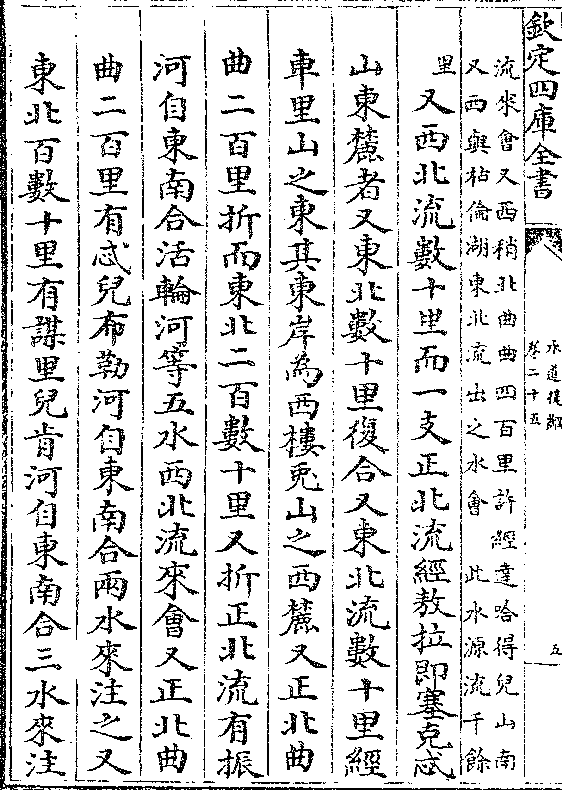 欽定四庫全書
水道提綱
卷二十五
五
流來會又西稍北曲曲四百里許經達哈得兒山南
又西與枯倫湖東北流出之水會 此水源流千餘
里又西北流數十里而一支正北流經敖拉即塞克忒
山東麓者又東北數十里復合又東北流數十里經
車里山之東其東岸為西樓兎山之西麓又正北曲
曲二百里折而東北二百數十里又折正北流有振
河自東南合活輪河等五水西北流來會又正北曲
曲二百里有忒兒布勒河自東南合兩水來注之又
東北百數十里有謀里兒肯河自東南合三水來注